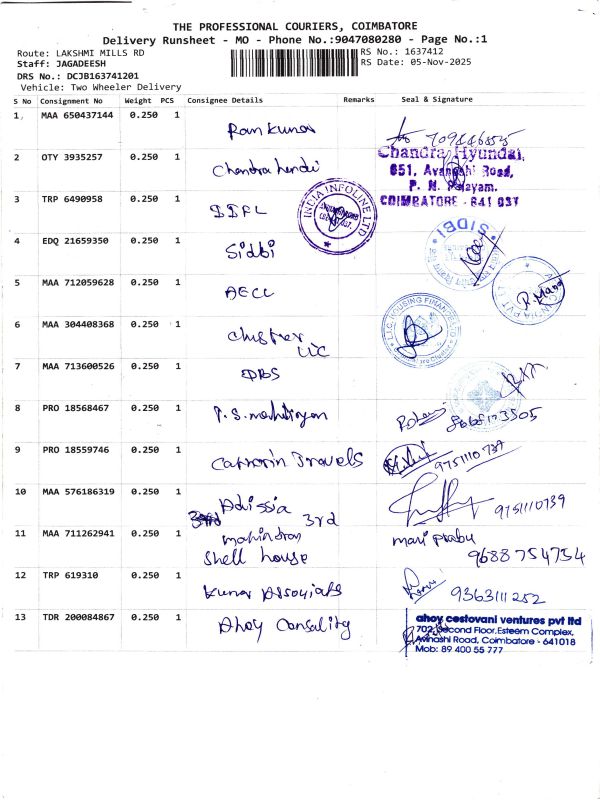 THE PROFESSIONAL COURIERS, COIMBATORE
Delivery Runsheet - MO - Phone No.:9047080280 - Page No.:1
Route: LAKSHMI MILLS RD RS No.: 1637412
Staff: JAGADEESH RS Date: 05-Nov-2025
DRS No.: DCJB163741201
Vehicle: Two Wheeler Delivery
S No Consignment No Weight PCS Consignee Details Remarks Seal & Signature
1 MAA 650437144 0.250 1 Ram kumar
2 OTY 3935257 0.250 1 Chandra
Chandra Hyundai,
651, Avanashi Road,
P. N. Palayam.
COIMBATORE - 641 037
3 TRP 6490958 0.250 1 IIFL
INDIA INFOLINE LTD
4 EDQ 21659350 0.250 1 Sidbi
SIDBI
5 MAA 712059628 0.250 1 AECC
R. Mano
6 MAA 304408368 0.250 1 LIC
L.I.C. HOUSING FINANCE LTD
7 MAA 713600526 0.250 1 DBS
8 PRO 18568467 0.250 1 P.S.
9 PRO 18559746 0.250 1 Travels 9751110739
10 MAA 576186319 0.250 1 Adissia 9751110739
3rd
11 MAA 711262941 0.250 1 mari prabu
Shell house 9688754754
12 TRP 619310 0.250 1 Kumar 9363111252
13 TDR 200084867 0.250 1 Ahoy
ahoy cestovani ventures pvt ltd
702, Second Floor, Esteem Complex,
Avinashi Road, Coimbatore - 641018
Mob: 89 400 55 777